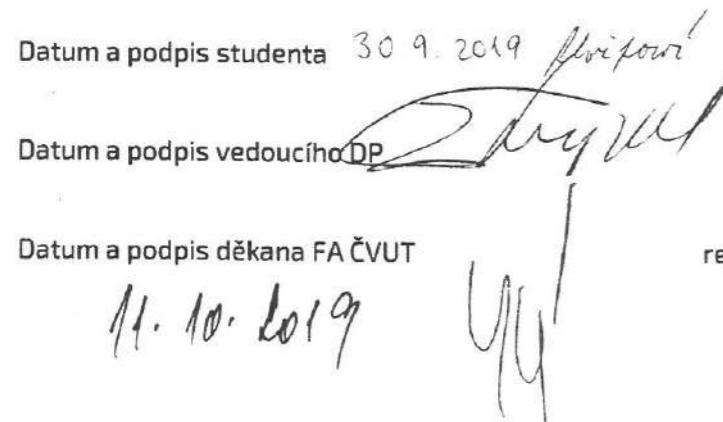 Datum a podpis studenta 30 9. 2019
Datum a podpis vedoucího DP
Datum a podpis děkana FA ČVUT re
11. 10. 2019